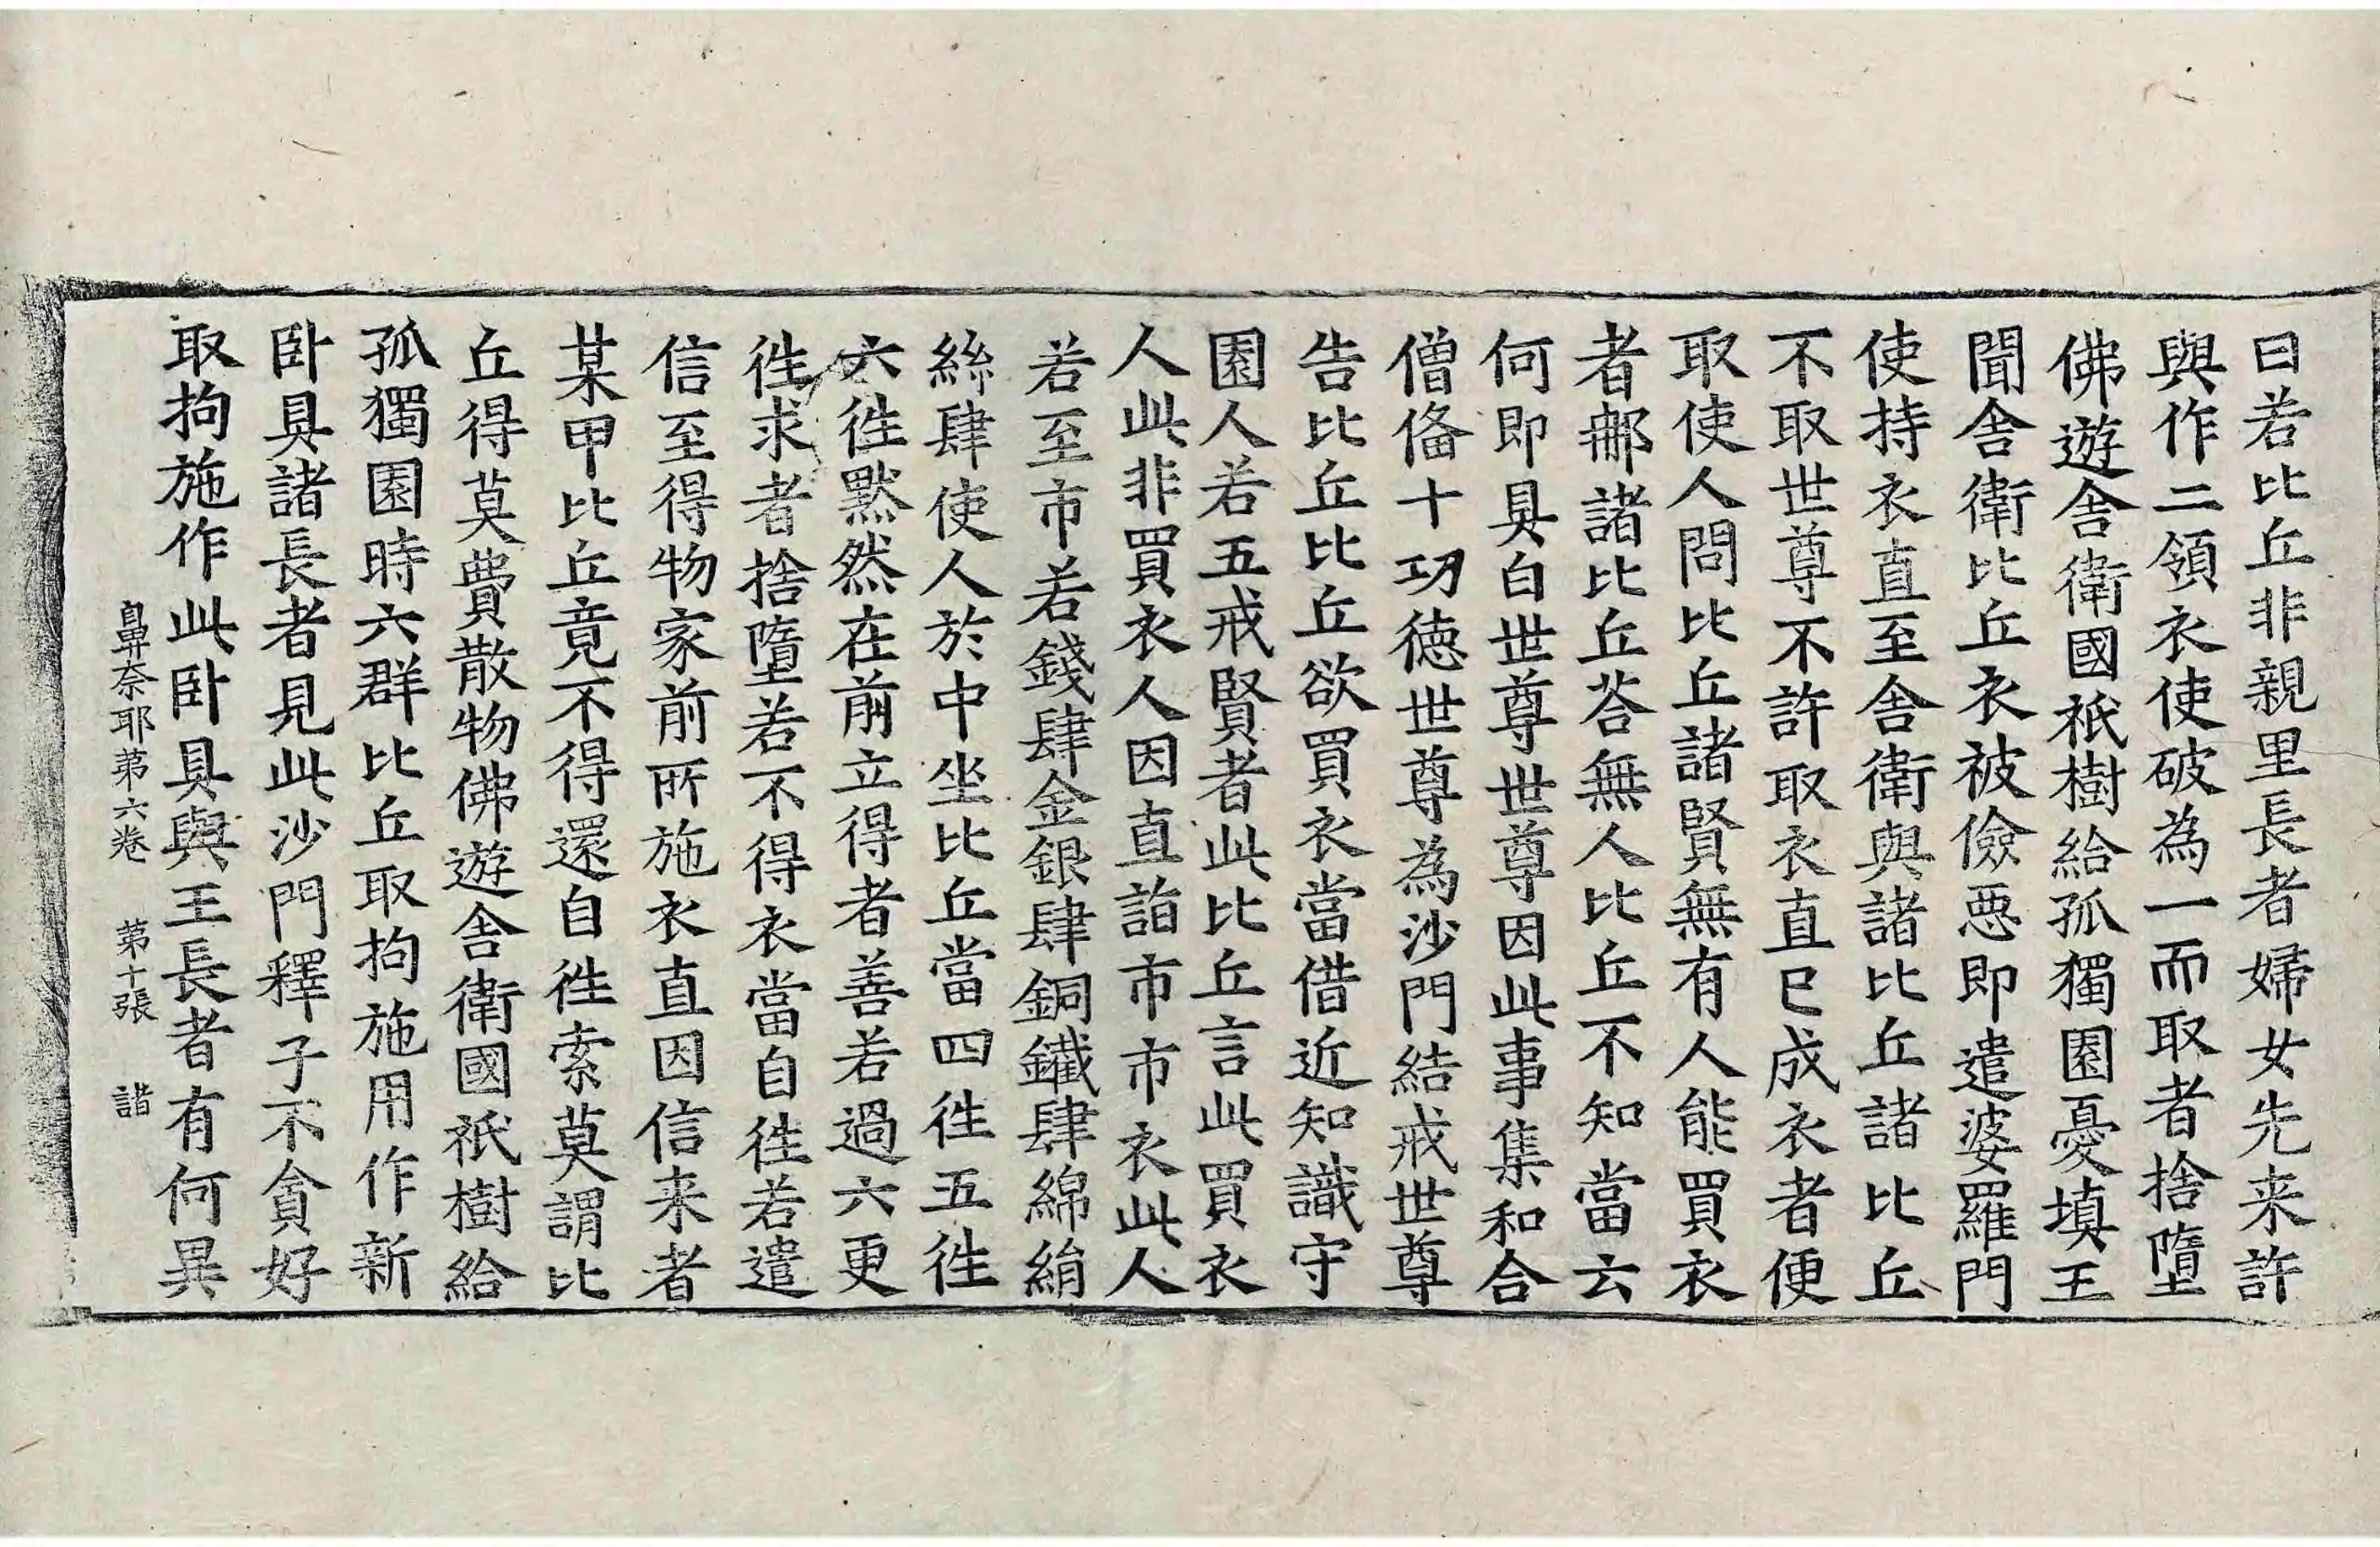 曰若比丘非親里長者婦女先来許
與作二領衣使破為一而取者捨墮
佛遊舍衛國祇樹給孤獨園憂填王
聞舍衛比丘衣被儉惡即遣婆羅門
使持衣直至舍衛與諸比丘諸比丘
不取世尊不許取衣直已成衣者便
取使人問比丘諸賢無有人能買衣
者耶諸比丘荅無人比丘不知當云
何即具白世尊世尊因此事集和合
僧俻十功德世尊為沙門結戒世尊
告比丘比丘欲買衣當借近知識守
園人若五戒賢者此比丘言此買衣
人此非買衣人因直詣市市衣此人
若至市若錢肆金銀肆銅鐵肆綿絹
絲肆使人於中坐比丘當四往五往
六往默然在前立得者善若過六更
往求者捨墮若不得衣當自往若遣
信至得物家前所施衣直因信来者
某甲比丘竟不得還自往索莫謂比
丘得莫費散物佛遊舍衛國祇樹給
孤獨園時六群比丘取拘施用作新
卧具諸長者見此沙門釋子不貪好
取拘施作此卧具與王長者有何異
鼻奈耶第六卷　第十張　諧